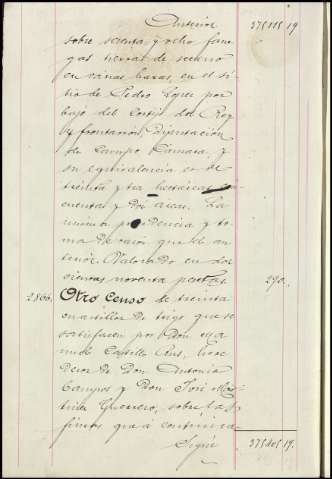 Anterior 375118 19
sobre sesenta y ocho fane
gas tierras de secano
en varias hazas, en el si
tio de Pedro Lopez por
bajo del Cortijo del Rey
y frontanos Diputación
de Campo Cámara, y
su equivalencia es de
treinta y tres hectáreas
cuentas y dos areas. La
misma procedencia y to
ma de razón que el an
terior. Valorado en dos
cientas noventa pesetas 290.
2866. Otro Censo de treinta
cuartillos de trigo que se
satisfacen por Don
Castillo here
deros de Don Antonio
Campos y Don José Mar
tinez Guerrero, sobre las
fincas que a continua
Sigue 19.